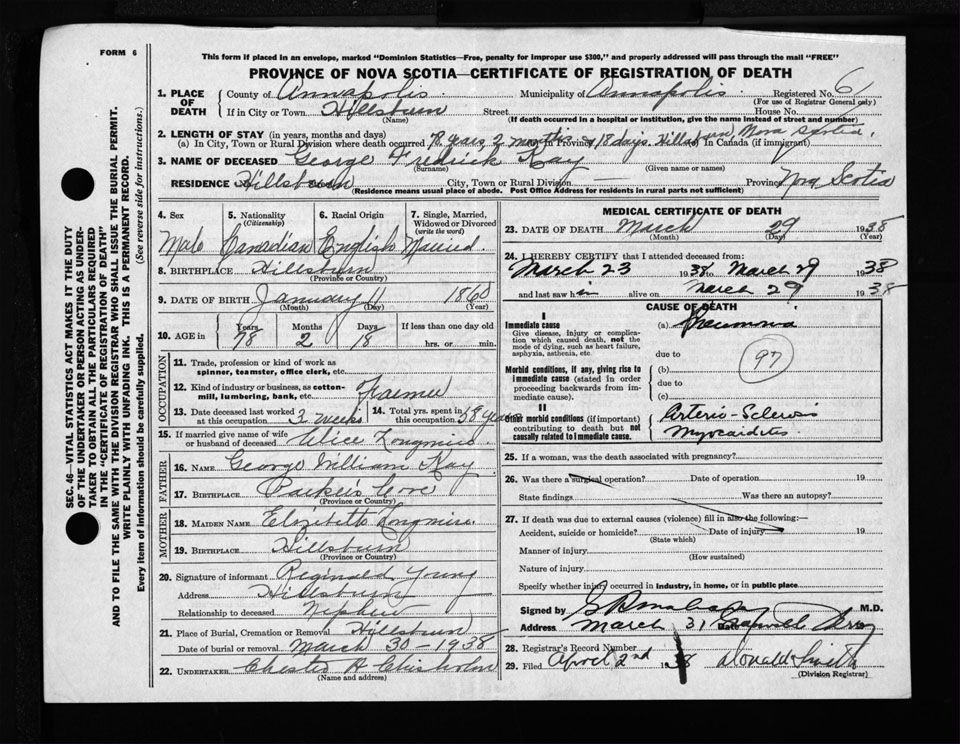 FORM 6
This form if placed in an envelope, marked "Dominion Statistics—Free, penalty for improper use $300," and properly addressed will pass through the mail "FREE"
PROVINCE OF NOVA SCOTIA—CERTIFICATE OF REGISTRATION OF DEATH
1. PLACE OF DEATH County of Annapolis Municipality of Annapolis Registered No. 6
(For use of Registrar General only)
If in City or Town Hillsburn Street House No.
(Name) (If death occurred in a hospital or institution, give the name instead of street and number)
2. LENGTH OF STAY (in years, months and days)
(a) In City, Town or Rural Division where death occurred 78 years 2 months In Province & 18 days. Hillsburn, Nova Scotia. In Canada (if immigrant)
3. NAME OF DECEASED George Fredrick Kay
(Surname) (Given name or names)
RESIDENCE Hillsburn City, Town or Rural Division — Province Nova Scotia
(Residence means usual place of abode. Post Office Address for residents in rural parts not sufficient)
SEC. 46—VITAL STATISTICS ACT MAKES IT THE DUTY
OF THE UNDERTAKER OR PERSON ACTING AS UNDER-
TAKER TO OBTAIN ALL THE PARTICULARS REQUIRED
IN THE "CERTIFICATE OF REGISTRATION OF DEATH"
AND TO FILE THE SAME WITH THE DIVISION REGISTRAR WHO SHALL ISSUE THE BURIAL PERMIT.
WRITE PLAINLY WITH UNFADING INK. THIS IS A PERMANENT RECORD.
Every item of information should be carefully supplied. (See reverse side for instructions.)
4. Sex 5. Nationality (Citizenship) 6. Racial Origin 7. Single, Married, Widowed or Divorced (write the word)
Male Canadian English Married.
8. BIRTHPLACE Hillsburn
(Province or Country)
9. DATE OF BIRTH January 11 1860
(Month) (Day) (Year)
10. AGE in Years Months Days If less than one day old
78 2 18 hrs. or min.
OCCUPATION
11. Trade, profession or kind of work as spinner, teamster, office clerk, etc.
12. Kind of industry or business, as cotton-mill, lumbering, bank, etc. Farmer
13. Date deceased last worked at this occupation 3 weeks 14. Total yrs. spent in this occupation 58 years
15. If married give name of wife or husband of deceased Alice Longmire.
FATHER
16. NAME George William Kay
17. BIRTHPLACE Parker's Cove
(Province or Country)
MOTHER
18. MAIDEN NAME Elizabeth Longmire.
19. BIRTHPLACE Hillsburn
(Province or Country)
20. Signature of informant Reginald Young
Address Hillsburn
Relationship to deceased Nephew
21. Place of Burial, Cremation or Removal Hillsburn
Date of burial or removal March 30-1938
22. UNDERTAKER Chester H Chisholm
(Name and address)
MEDICAL CERTIFICATE OF DEATH
23. DATE OF DEATH March 29 1938
(Month) (Day) (Year)
24. I HEREBY CERTIFY that I attended deceased from:
March 23 1938 to March 29 1938
and last saw him alive on March 29 1938
CAUSE OF DEATH
I
Immediate cause (a) Pneumonia
Give disease, injury or complication which caused death, not the mode of dying, such as heart failure, asphyxia, asthenia, etc.
due to
97
Morbid conditions, if any, giving rise to immediate cause (stated in order proceeding backwards from immediate cause).
(b)
due to
(c)
II
Other morbid conditions (if important) contributing to death but not causally related to immediate cause.
Arterio-Sclerosis
Myocarditis
25. If a woman, was the death associated with pregnancy?
26. Was there a surgical operation? Date of operation 19
State findings Was there an autopsy?
27. If death was due to external causes (violence) fill in also the following:—
Accident, suicide or homicide? Date of injury 19
(State which)
Manner of injury
(How sustained)
Nature of injury
Specify whether injury occurred in industry, in home, or in public place
Signed by M.D.
Address March 31 Date
28. Registrar's Record Number
29. Filed April 2nd 1938 Donald Smith
(Division Registrar)